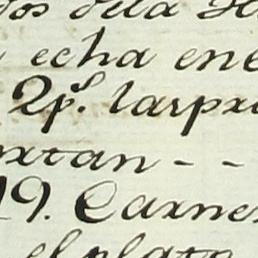 dos dela
echa ene
2ps. las pr
rtan - -
19. Carne
el plato